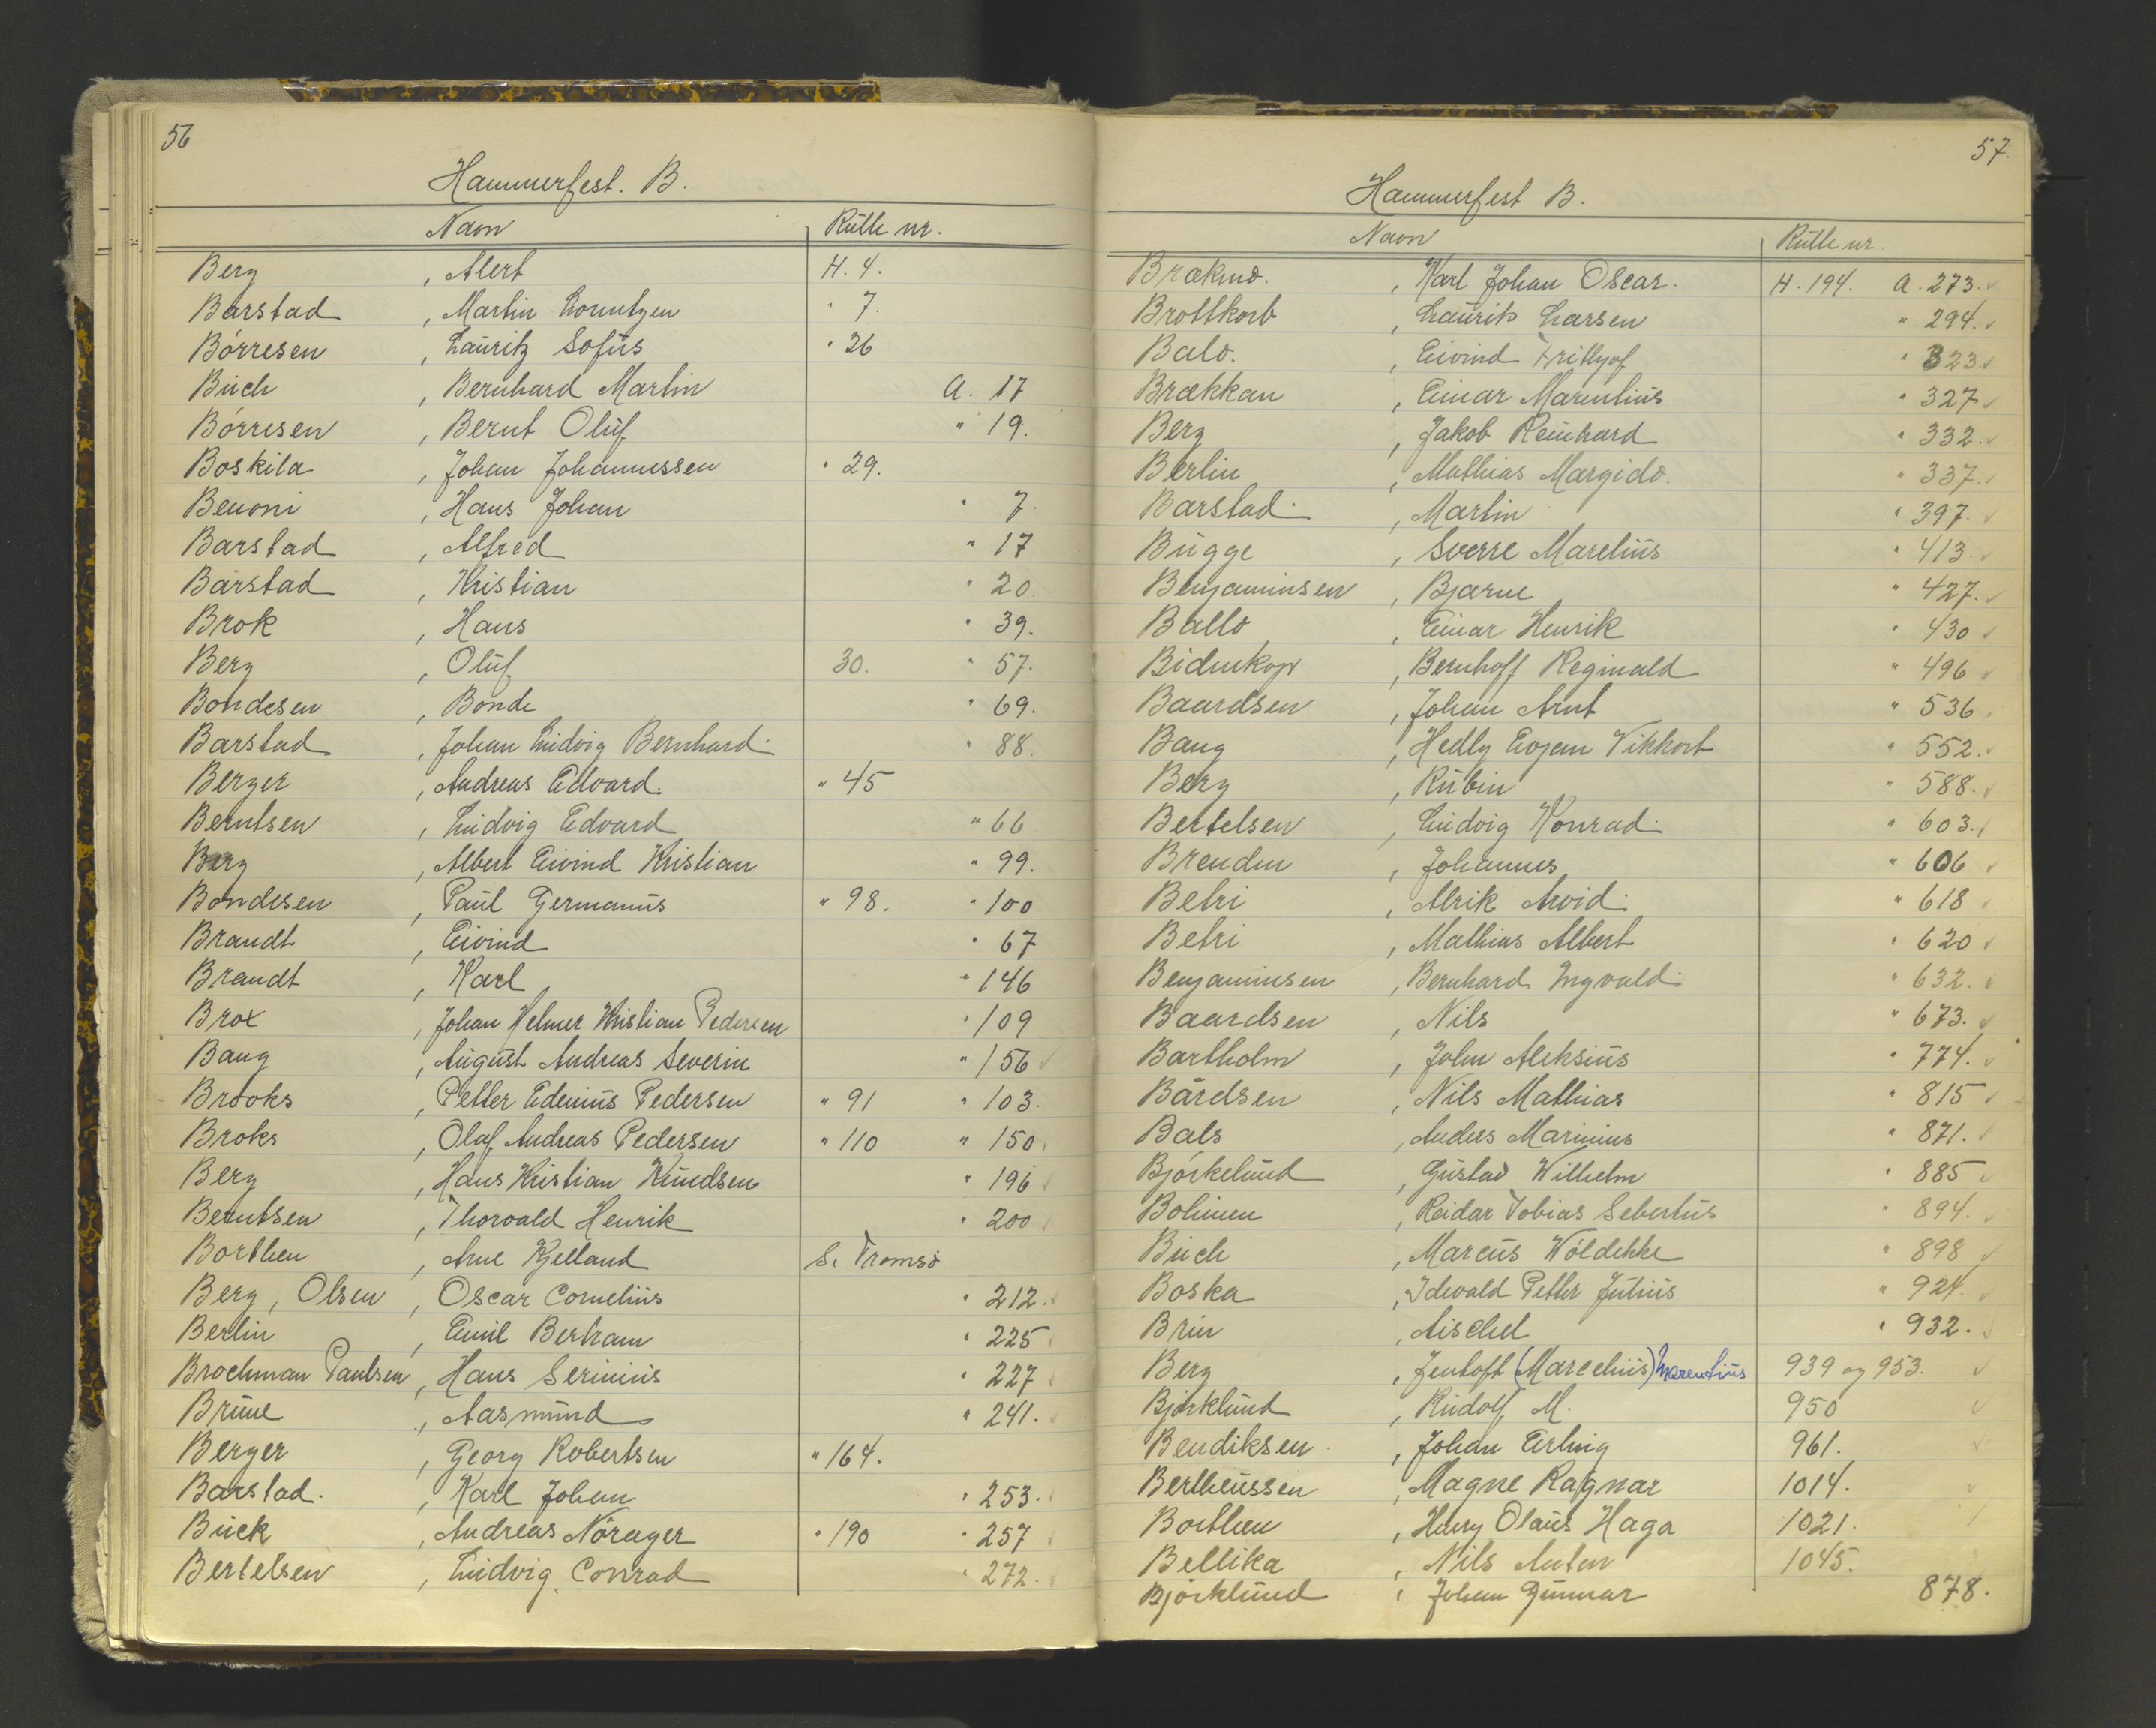 56
Hammerfest. B.
Navn Rulle nr.
Berg , Alert H. 4.
Barstad , Martin Lorentzen " 7.
Börresen , Lauritz Sofus " 26
Buch , Bernhard Martin A. 17
Börresen , Bernt Oluf " 19.
Boskila , Johan Johannessen " 29.
Benoni , Hans Johan " 7.
Barstad , Alfred " 17
Barstad , Kristian " 20.
Brok , Hans " 39.
Berg , Oluf 30. " 57.
Bondesen , Bonde " 69.
Barstad , Johan Ludvig Bernhard " 88.
Berger , Andreas Edvard. " 45
Berntsen , Ludvig Edvard " 66
Berg , Albert Eivind Kristian " 99.
Bondesen , Paul Germanus " 98. " 100
Brandt , Eivind " 67
Brandt , Karl " 146
Brox , Johan Helmer Kristian Pedersen " 109
Bang , August Andreas Severin " 156 ✓
Brooks , Petter Edenius Pedersen " 91 " 103.
Broks , Olaf Andreas Pedersen " 110 " 150.
Berg , Hans Kristian Knudsen " 196
Berntsen , Thorvald Henrik " 200
Borthen , Arne Kjelland S. Tromsö
Berg, Olsen , Oscar Cornelius " 212.
Berlin , Emil Bertram " 225
Brochman Paulsen , Hans Serinius " 227
Brune , Aasmund " 241.
Berger , Georg Robertsen " 164.
Barstad. , Karl Johan " 253.
Buck , Andreas Nörager " 190 " 257
Bertelsen , Ludvig Conrad " 272.
57.
Hammerfest B.
Navn Rulle nr.
Brækmo. , Karl Johan Oscar. H. 194. A. 273. ✓
Brottkorb , Laurits Larsen " 294. ✓
Balo. , Eivind Frithjof " 323 ✓
Brækkan , Einar Marentius " 327 ✓
Berg , Jakob Reinhard " 332. ✓
Berlin , Mathias Margido. " 337. ✓
Barstad. , Martin " 397. ✓
Bugge , Sverre Marelius " 413. ✓
Benjaminsen , Bjarne " 427. ✓
Ballo , Einar Henrik " 430 ✓
Bidnukop , Bernhoff Reginald " 496 ✓
Baardsen , Johan Arnt " 536
Bang , Hedly Evjem Vikkort " 552. ✓
Berg , Rubin " 588. ✓
Bertelsen , Ludvig Konrad. " 603. ✓
Brenden , Johannes " 606 ✓
Betri , Alrik Arvid. " 618 ✓
Betri , Mathias Albert " 620 ✓
Benjaminsen , Bernhard Ingvald. " 632. ✓
Baardsen , Nils " 673. ✓
Bartholm , John Aleksius " 774. ✓
Bårdsen , Nils Mathias " 815 ✓
Bals , Anders Marinius " 871. ✓
Björkelund , Gustav Wilhelm " 885 ✓
Bolinen , Reidar Tobias Sebertus " 894. ✓
Buch , Marcus Wöldekke " 898 ✓
Boska , Idevald Petter Julius " 924. ✓
Brin , Aischel " 932. ✓
Berg , Jentoft (Marcelius) Marentius 939 og 953. ✓
Björklund , Rudolf M. 950 ✓
Bendiksen. , Johan Erling 961. ✓
Bertheussen , Magne Ragnar 1014. ✓
Borthen , Harry Olaus Haga 1021. ✓
Bellika , Nils Anton 1045.
Björklund , Johan Gunnar 878.